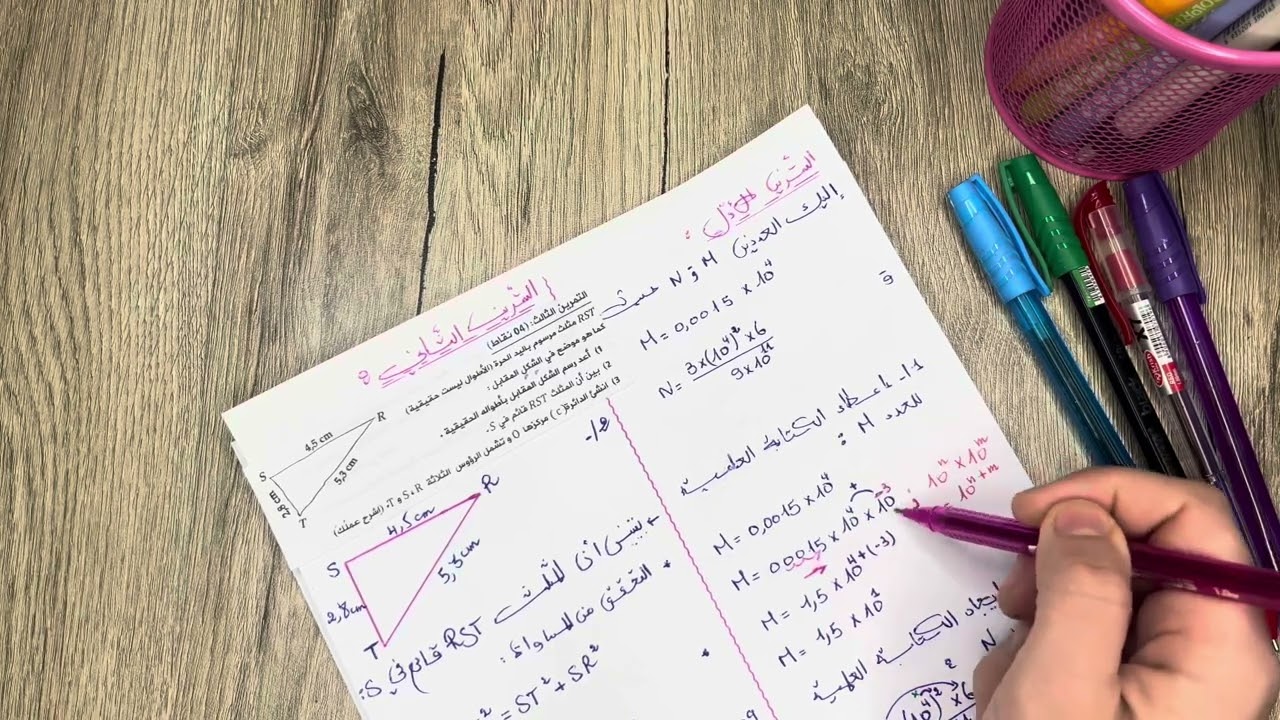 التمرين الأول :
إليك العددين M و N حيث
M = 0,0015 × 10⁴
و
N = 3×(10⁴)² × 6 / 9 × 10¹¹
1.1- إعطاء الكتابة العلمية
للعدد M :
M = 0,0015 × 10⁴
M = 0,0015 × 10⁴ × 10⁻³
10ⁿ × 10ᵐ
= 10ⁿ⁺ᵐ
M = 1,5 × 10⁴⁺⁽⁻³⁾
M = 1,5 × 10¹
إيجاد الكتابة العلمية
N
(10⁴)² × 6
التمرين الثاني :
التمرين الثالث: (04 نقاط)
RST مثلث مرسوم باليد الحرة (الأطوال ليست حقيقية)
كما هو موضح في الشكل المقابل :
1) أعد رسم الشكل المقابل بأطواله الحقيقية .
2) بين أن المثلث RST قائم في S.
3) انشئ الدائرة (C) مركزها O و تشمل الرؤوس الثلاثة R ، S و T. (اشرح عملك)
R
4,5 cm
S
5,3 cm
2,8 cm
T
2/-
R
4,5 cm
S
5,3 cm
2,8cm
T
+ يتبين أن المثلث RST قائم في S:
+ التحقق من المساواة :
² = ST² + SR²